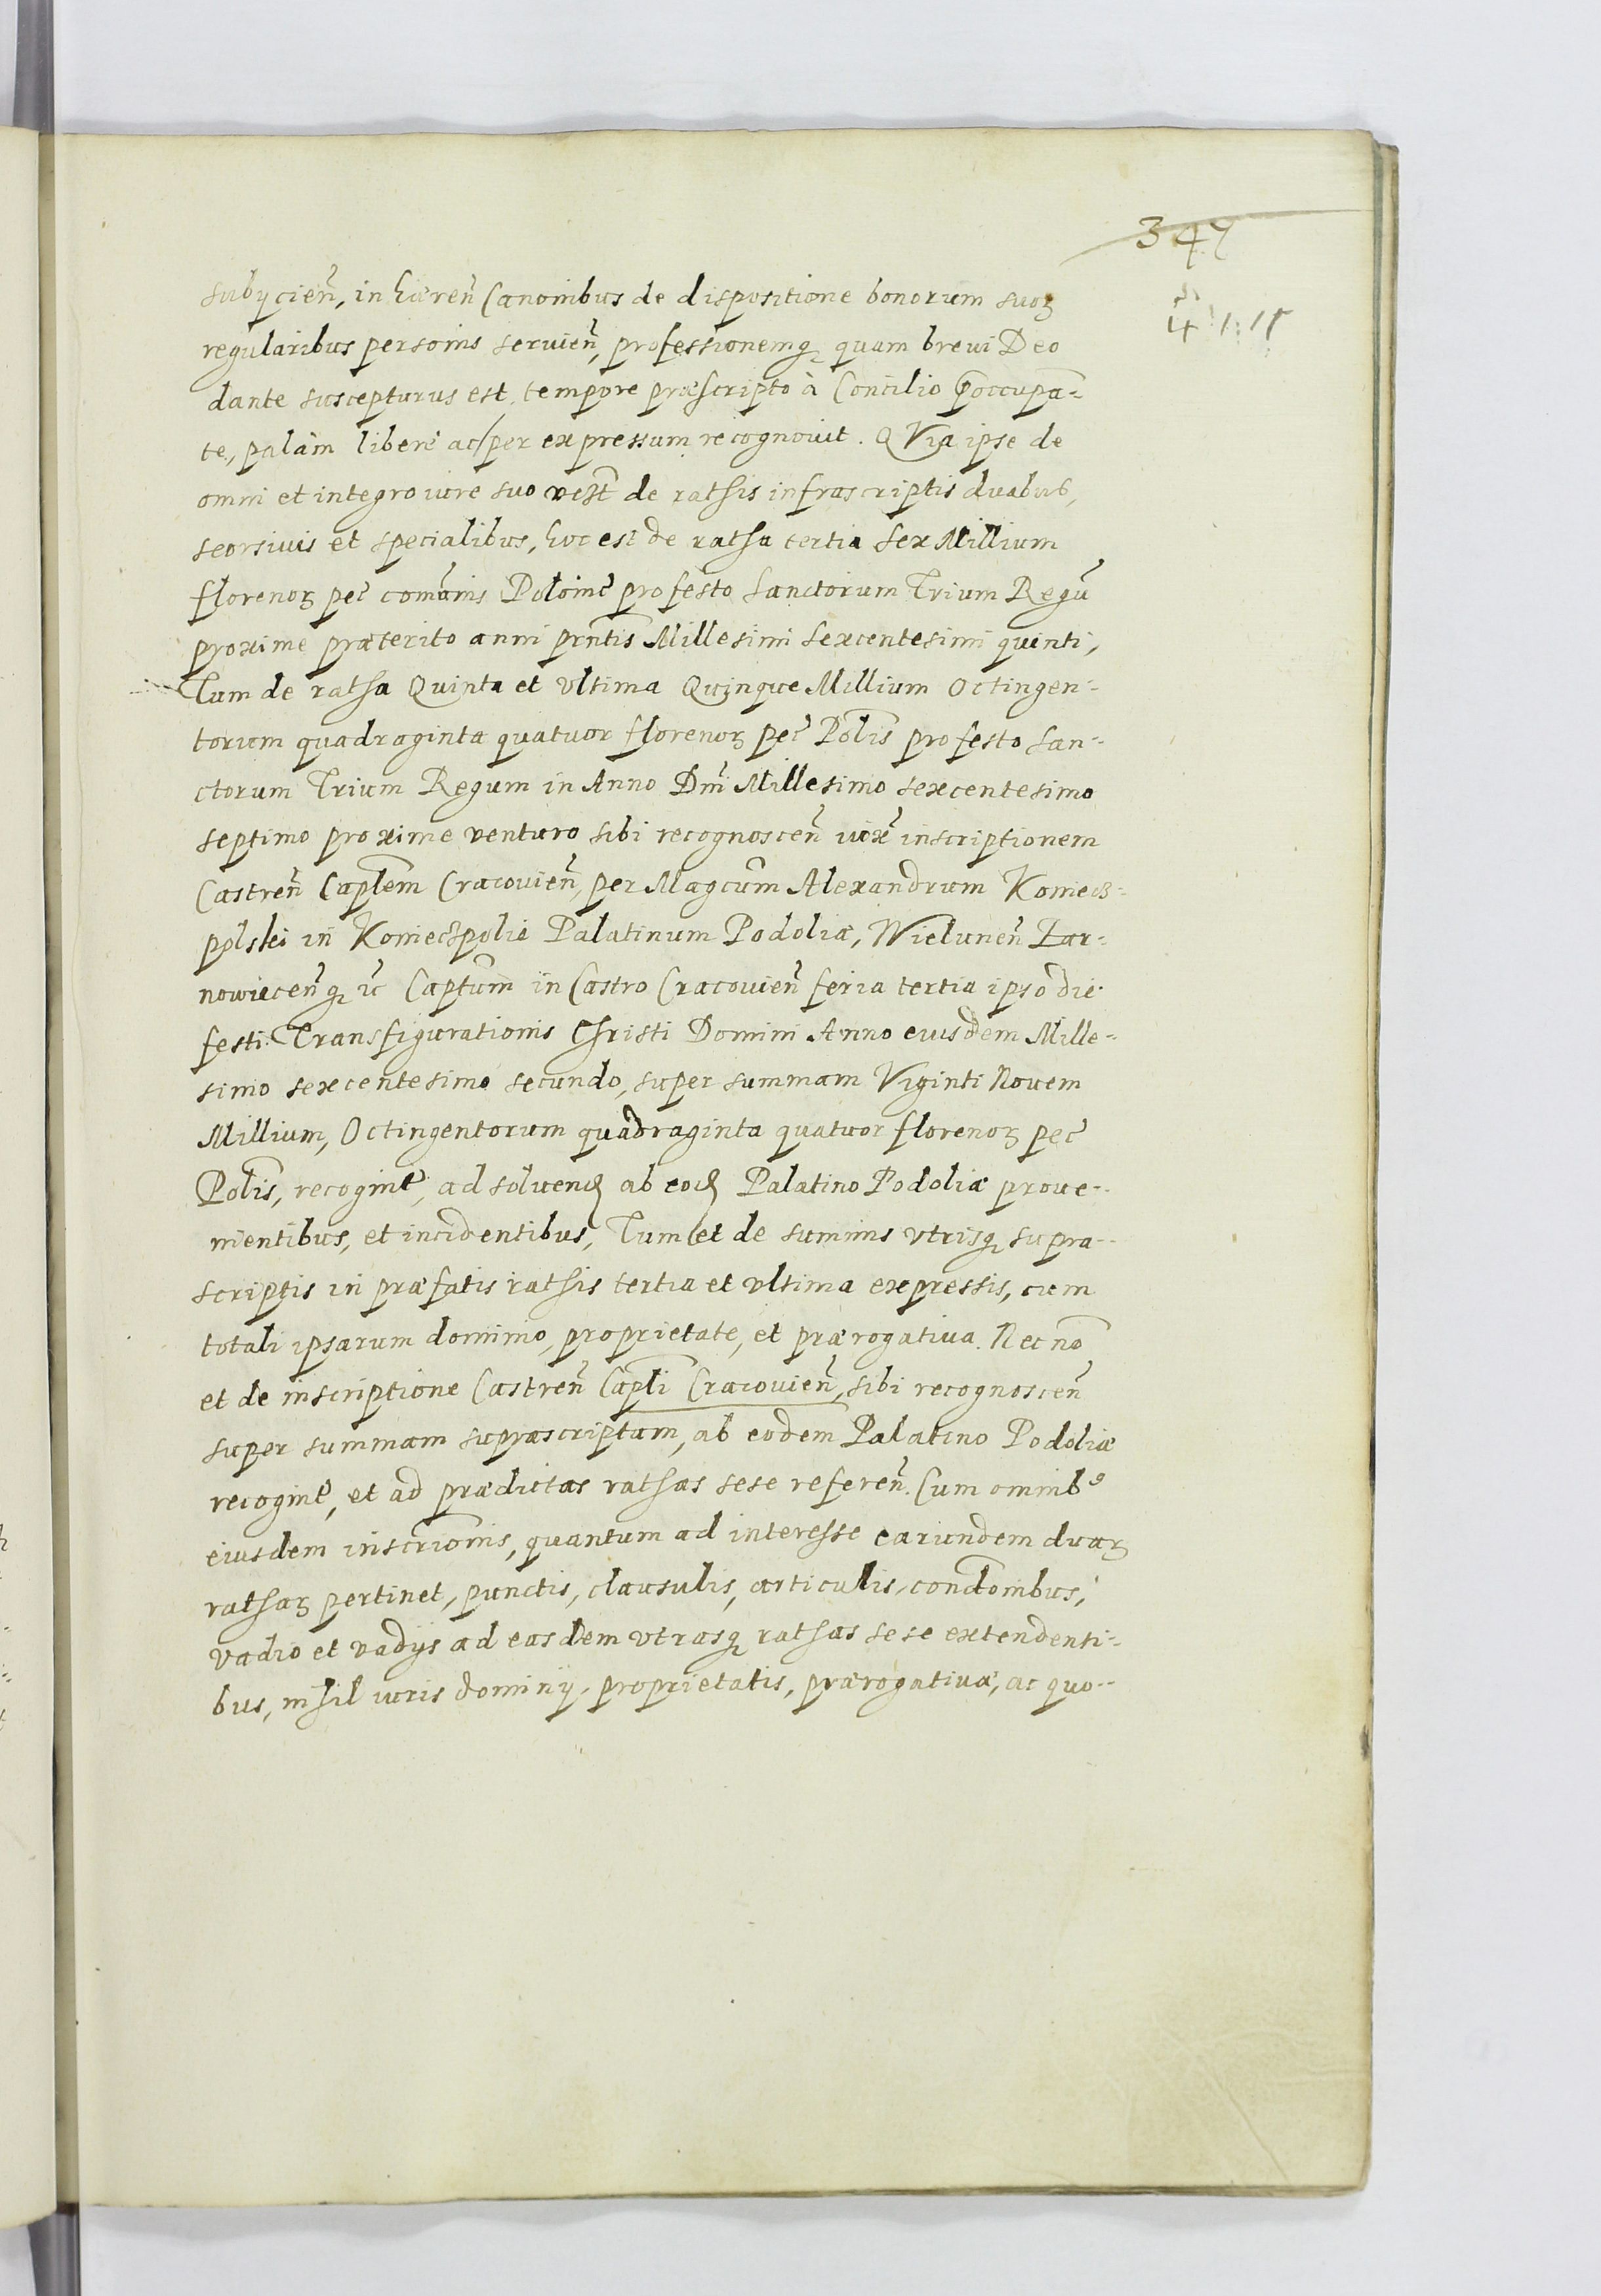 349
subÿcien, in hæren Canonibus de dispositione bonorum suoꝝ
regularibus personis servien, professionemqꝫ quam brevi Deo
dante suscepturus est, tempore præscripto à Concilio p̄occupa-
te, palàm liberè ac per expressum recognovit. QVia ipse de
omni et integro iure suo vest̃ de rathis infrascriptis duabus,
seorsivis et specialibus, hoc est de ratha tertia sex Millium
florenoꝝ pec̃ com̃unis Polonic̃ pro festo sanctorum Trium Regũ
proxime præterito anni pñtis Millesimi sexcentesimi quinti,
Tum de ratha Quinta et vltima Quinque Millium Octingen-
torum quadraginta quatuor florenoꝝ pec̃ Polis̃ pro festo san-
ctorum Trium Regum in Anno Dñi Millesimo sexcentesimo
septimo proxime venturo sibi recognosceñ iux̃ inscriptionem
Castreñ Caplem̃ Cracovieñ, per Magcum̃ Alexandrum Koniecz-
polski in Konieczpolie Palatinum Podoliæ, Wieluneñ Zar-
nowieceñqꝫ ic̃ Captum̃ in Castro Cracovieñ feria tertia ipso die
festi Transfigurationis Christi Domini Anno eiusdem Mille-
simo sexcentesimo secundo, super summam Viginti Novem
Millium, Octingentorum quadraginta quatuor florenoꝝ pec̃
Polis̃, recognit̃, ad solvend ab eod Palatino Podoliæ prove-
nientibus, et incidentibus, Tum et de summis vtrisqꝫ supra-
scriptis in præfatis rathis tertia et vltima expressis, cum
totali ipsarum dominio, proprietate, et prærogativa. Nec nõ
et de inscriptione Castreñ Capli̅ Cracovieñ, sibi recognosceñ
super summam suprascriptam, ab eodem Palatino Podoliæ
recognit̃, et ad prædictas rathas sese refereñ. Cum omnibꝰ
eiusdem inscrĩonis, quantum ad interesse earundem duaꝝ
rathaꝝ pertinet, punctis, clausulis, articulis, condõnibus,
vadio et vadÿs ad easdem vtrasqꝫ rathas sese extendenti-
bus, nihil iuris dominÿ, proprietatis, prærogativæ, ac quo-